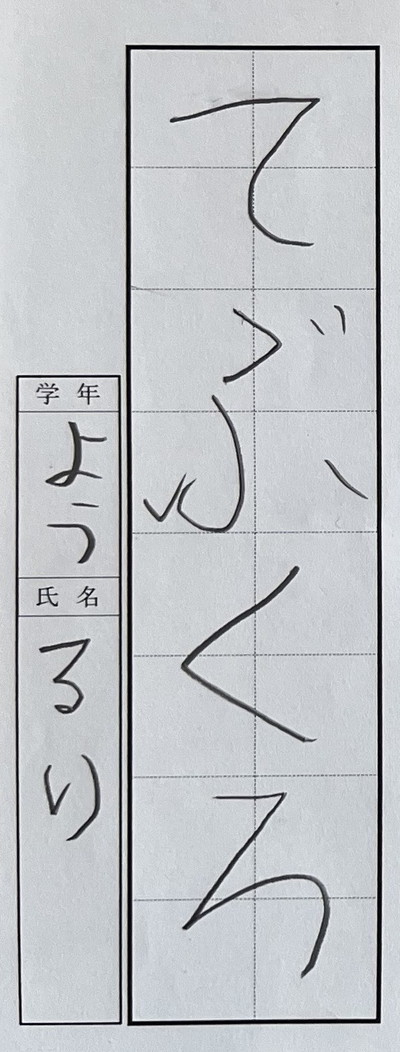 てぶくろ
学年
よう
氏名
るり